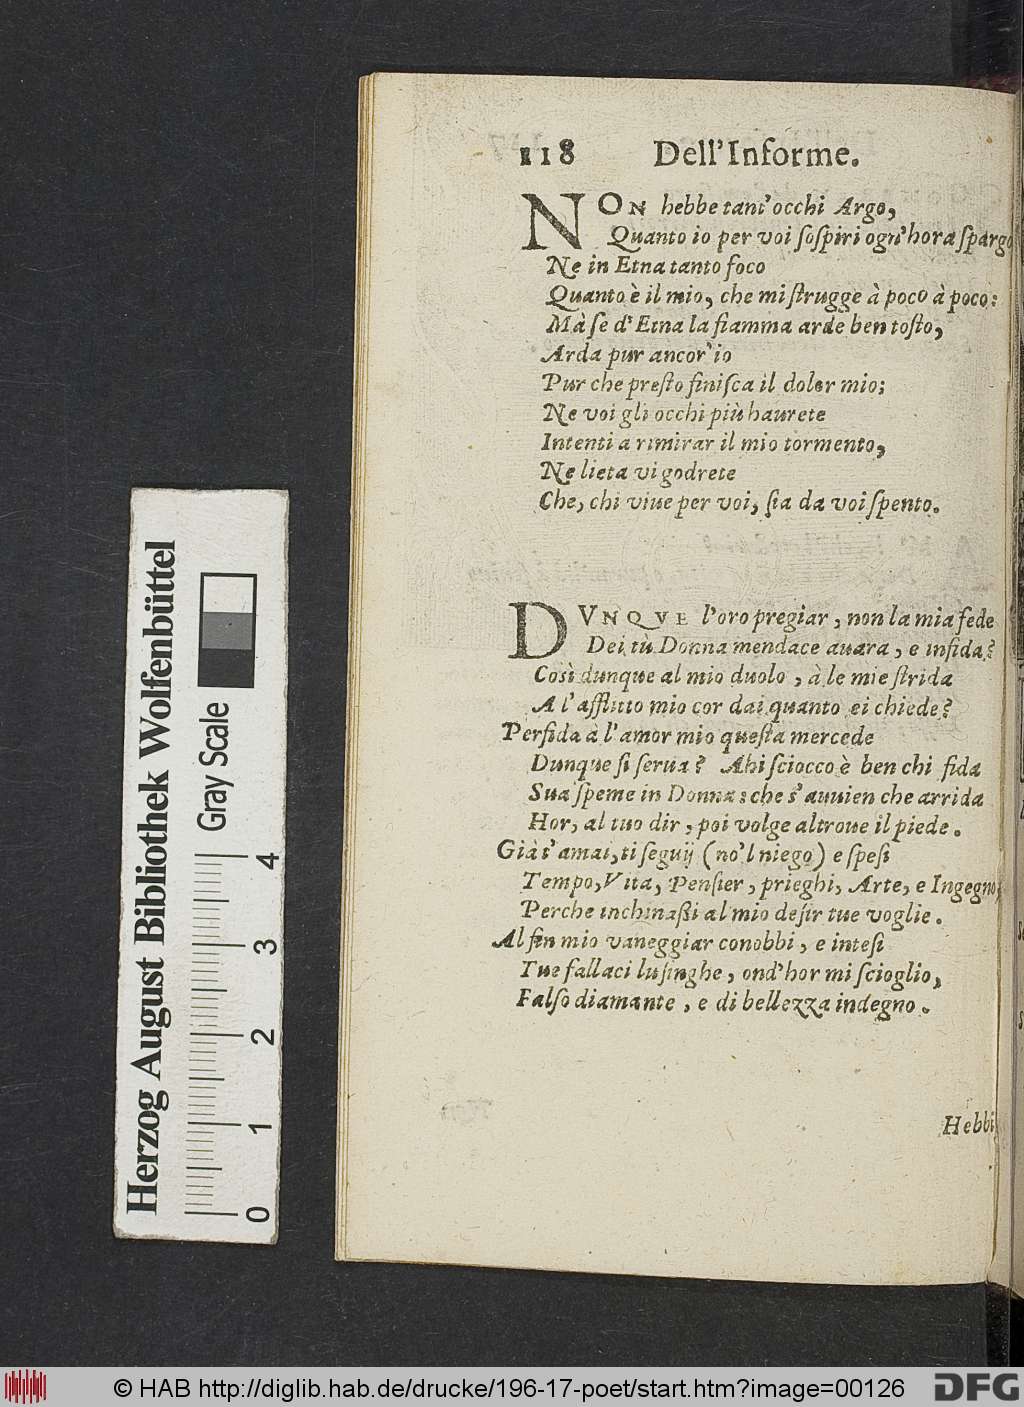 118 Dell'Informe.
NON hebbe tant'occhi Argo,
Quanto io per voi ſoſpiri ogn'hora ſpargo
Ne in Etna tanto foco
Quanto è il mio, che mi ſtrugge à poco à poco:
Mà ſe d'Etna la fiamma arde ben toſto,
Arda pur ancor'io
Pur che preſto finiſca il dolor mio;
Ne voi gli occhi più haurete
Intenti a rimirar il mio tormento,
Ne lieta vi godrete
Che, chi viue per voi, ſia da voi ſpento.
DVNQVE l'oro pregiar, non la mia fede
Dei tù Donna mendace auara, e infida?
Così dunque al mio duolo, à le mie ſtrida
A l'afflitto mio cor dai quanto ei chiede?
Perfida à l'amor mio queſta mercede
Dunque ſi ſerua? Ahi ſciocco è ben chi fida
Sua ſpeme in Donna: che s'auuien che arrida
Hor, al tuo dir, poi volge altroue il piede.
Già t'amai, ti ſeguij (no'l niego) e ſpeſi
Tempo, Vita, Penſier, prieghi, Arte, e Ingegno,
Perche inchinaßi al mio deſir tue voglie.
Al fin mio vaneggiar conobbi, e inteſi
Tue fallaci luſinghe, ond'hor mi ſcioglio,
Falſo diamante, e di bellezza indegno.
Hebbi
Herzog August Bibliothek Wolfenbüttel
Gray Scale
0 1 2 3 4
© HAB http://diglib.hab.de/drucke/196-17-poet/start.htm?image=00126
DFG